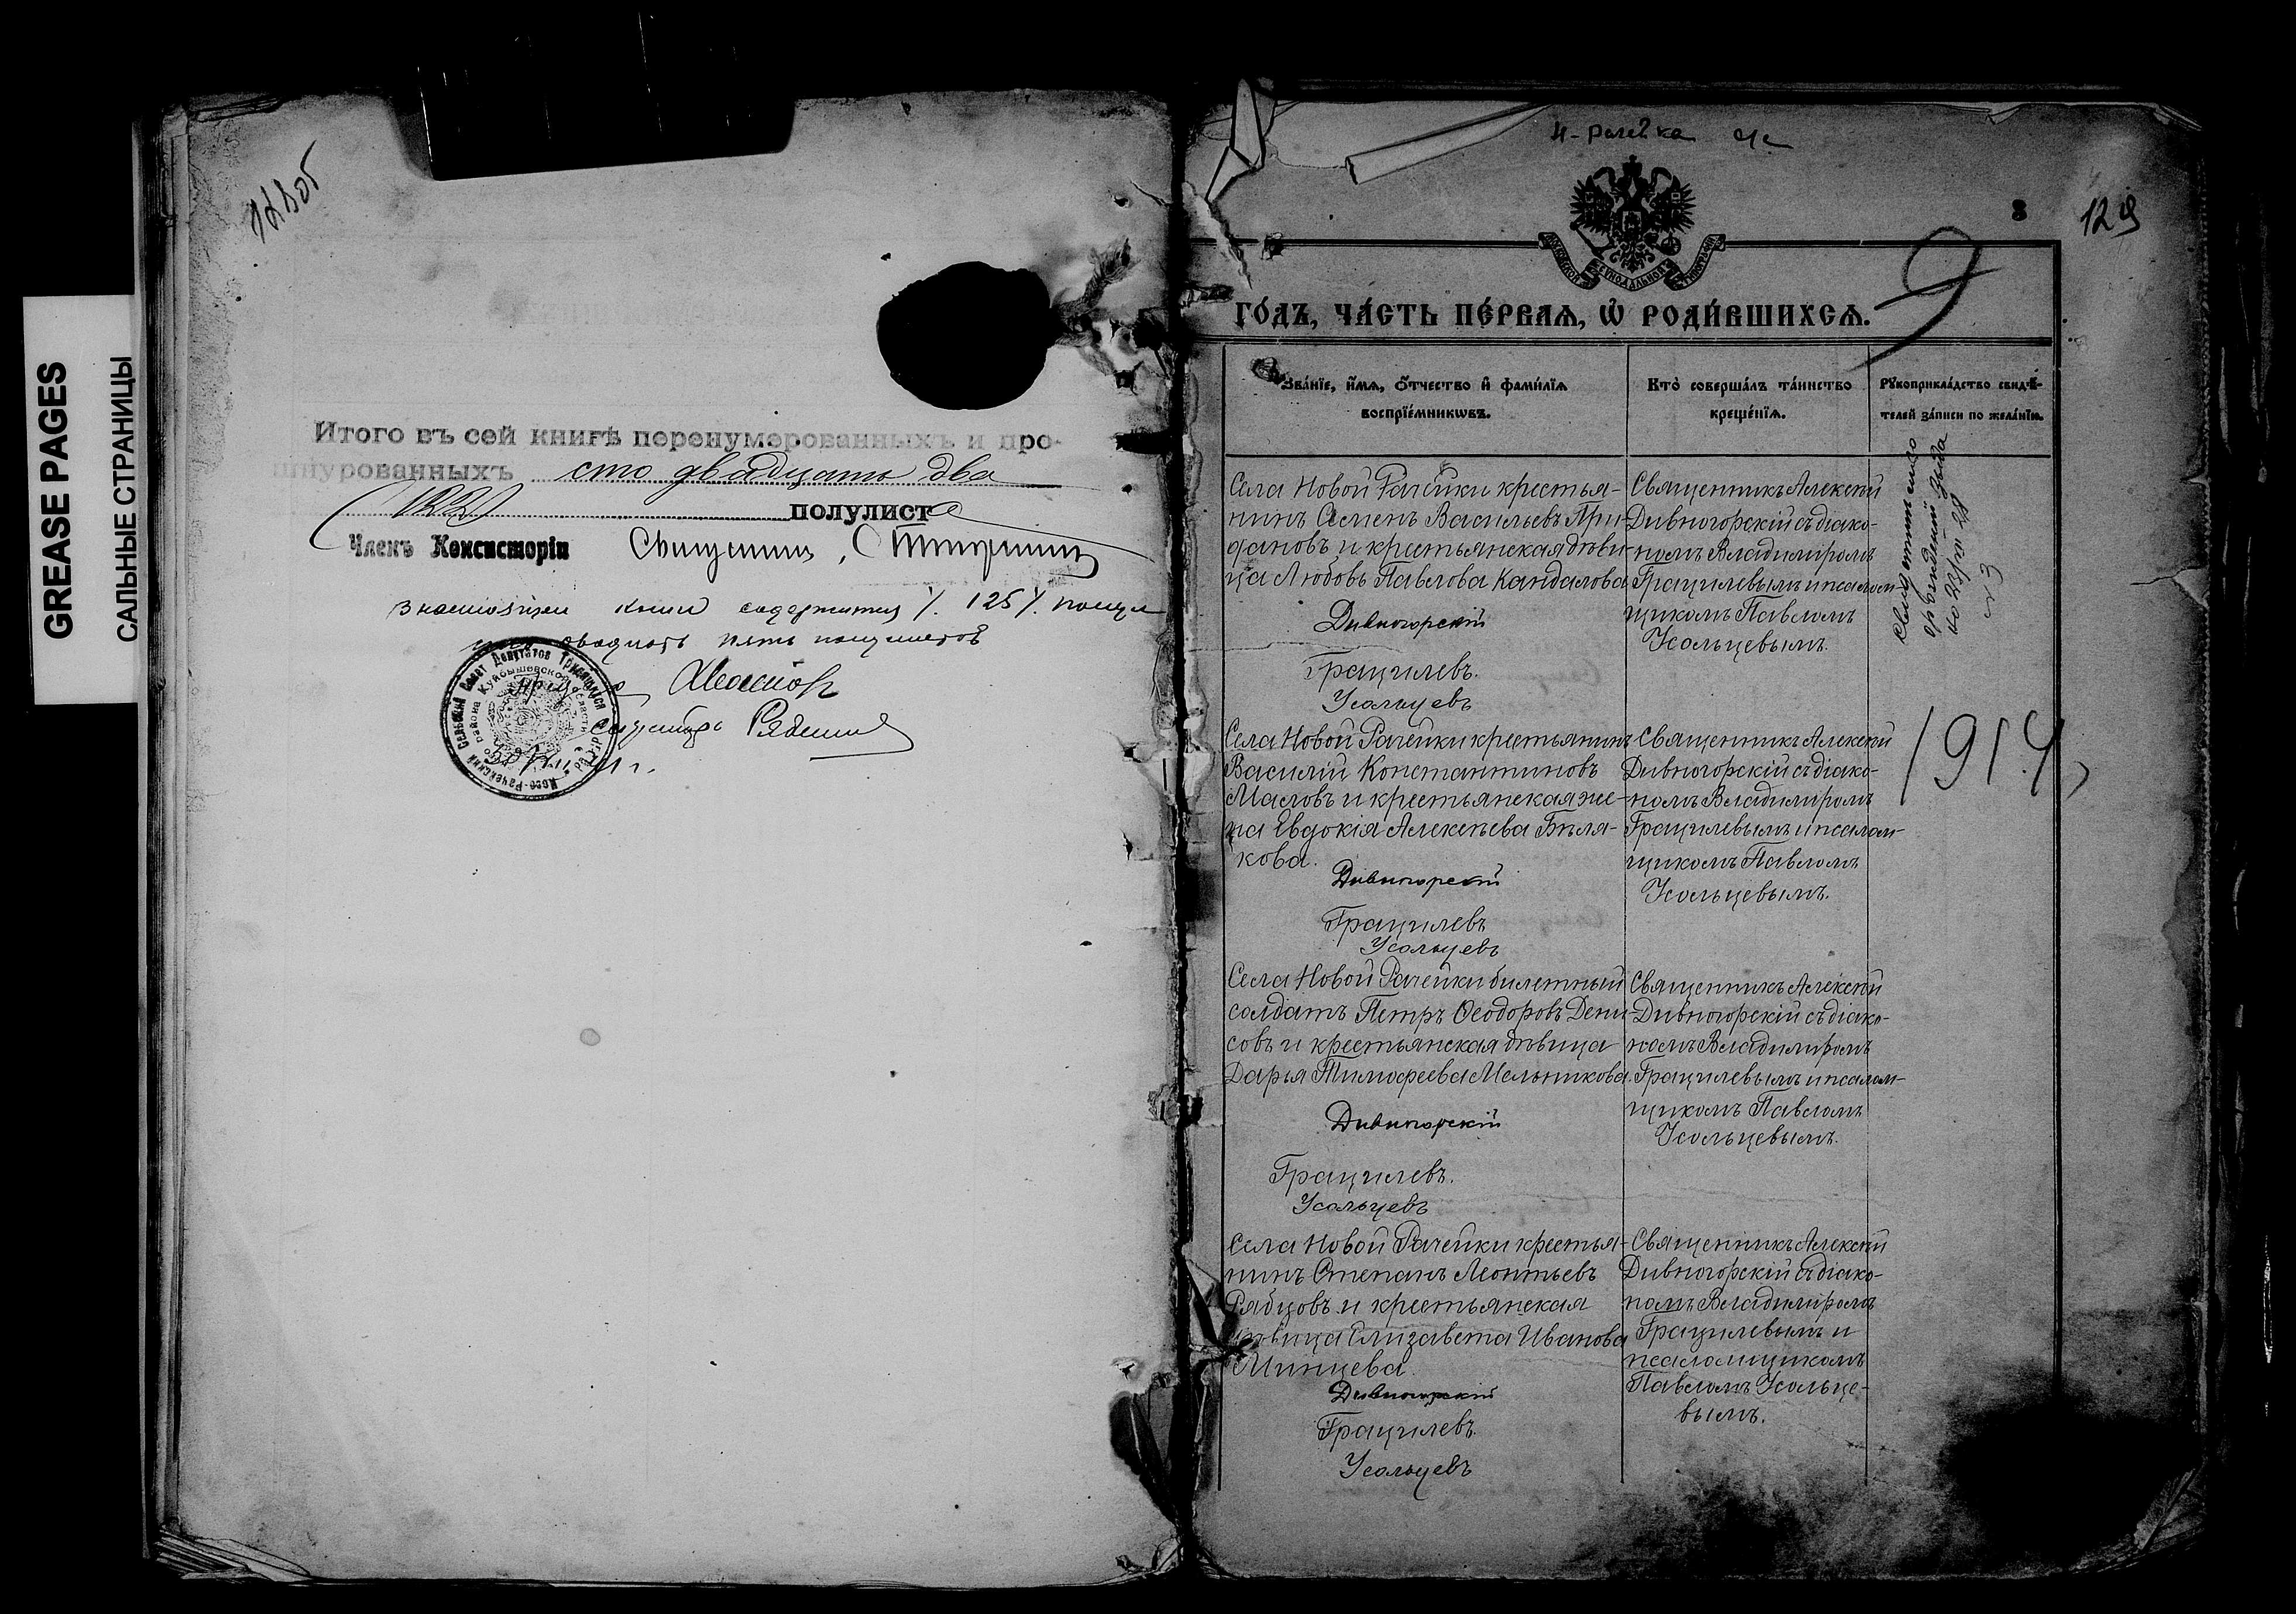 GREASE PAGES
САЛЬНЫЕ СТРАНИЦЫ
128об
Итого въ сей книгѣ перенумерованныхъ и про-
шнурованныхъ сто двадцать два
(122) полулист
Членъ Консисторіи Священникъ
В настоящей книге содержится /. 125 /.
двадцать пять полулистов
Секретарь
Н-Рачейка
129
МОСКОВСКОЙ СѴНОДАЛЬНОЙ ТИПОГРАФІИ
9
ГО́ДЪ, ЧА́СТЬ ПЕ́РВАѦ, Ѽ РОДИ́ВШИХСѦ.
Зва́нїе, и́мѧ, ѻ́тчество и҆ фами́лїѧ
воспрїе́мникѡвъ.
Кто̀ соверша́лъ та́инство
креще́нїѧ.
Рꙋкоприкла́дство свидѣ́-
телей за́писи по жела́нїю.
Села Новой Рачейки крестья-
нинъ Семенъ Васильевъ При-
дановъ и крестьянская дѣви-
ца Любовь Павлова Кандалова
Дивногорскій
Грацилевъ.
Усольцевъ
Священникъ Алексѣй
Дивногорскій съ діако-
номъ Владиміромъ
Грацилевымъ и псалом-
щикомъ Павломъ
Усольцевымъ.
Села Новой Рачейки крестьянинъ
Василій Константиновъ
Масловъ и крестьянская же-
на Евдокія Алексѣева Бѣля-
кова.
Дивногорскій
Грацилевъ
Усольцевъ
Священникъ Алексѣй
Дивногорскій съ діако-
номъ Владиміромъ
Грацилевымъ и псалом-
щикомъ Павломъ
Усольцевымъ.
1914
Села Новой Рачейки билетный
солдатъ Петръ Ѳеодоровъ Дени-
совъ и крестьянская дѣвица
Дарья Тимофеева Мельникова.
Дивногорскій
Грацилевъ.
Усольцевъ
Священникъ Алексѣй
Дивногорскій съ діако-
номъ Владиміромъ
Грацилевымъ и псалом-
щикомъ Павломъ
Усольцевымъ.
Села Новой Рачейки крестья-
нинъ Степанъ Леонтьевъ
Рябцовъ и крестьянская
дѣвица Елизавета Иванова
Минцева.
Дивногорскій
Грацилевъ.
Усольцевъ
Священникъ Алексѣй
Дивногорскій съ діако-
номъ Владиміромъ
Грацилевымъ и
псаломщикомъ
Павломъ Усольце-
вымъ.